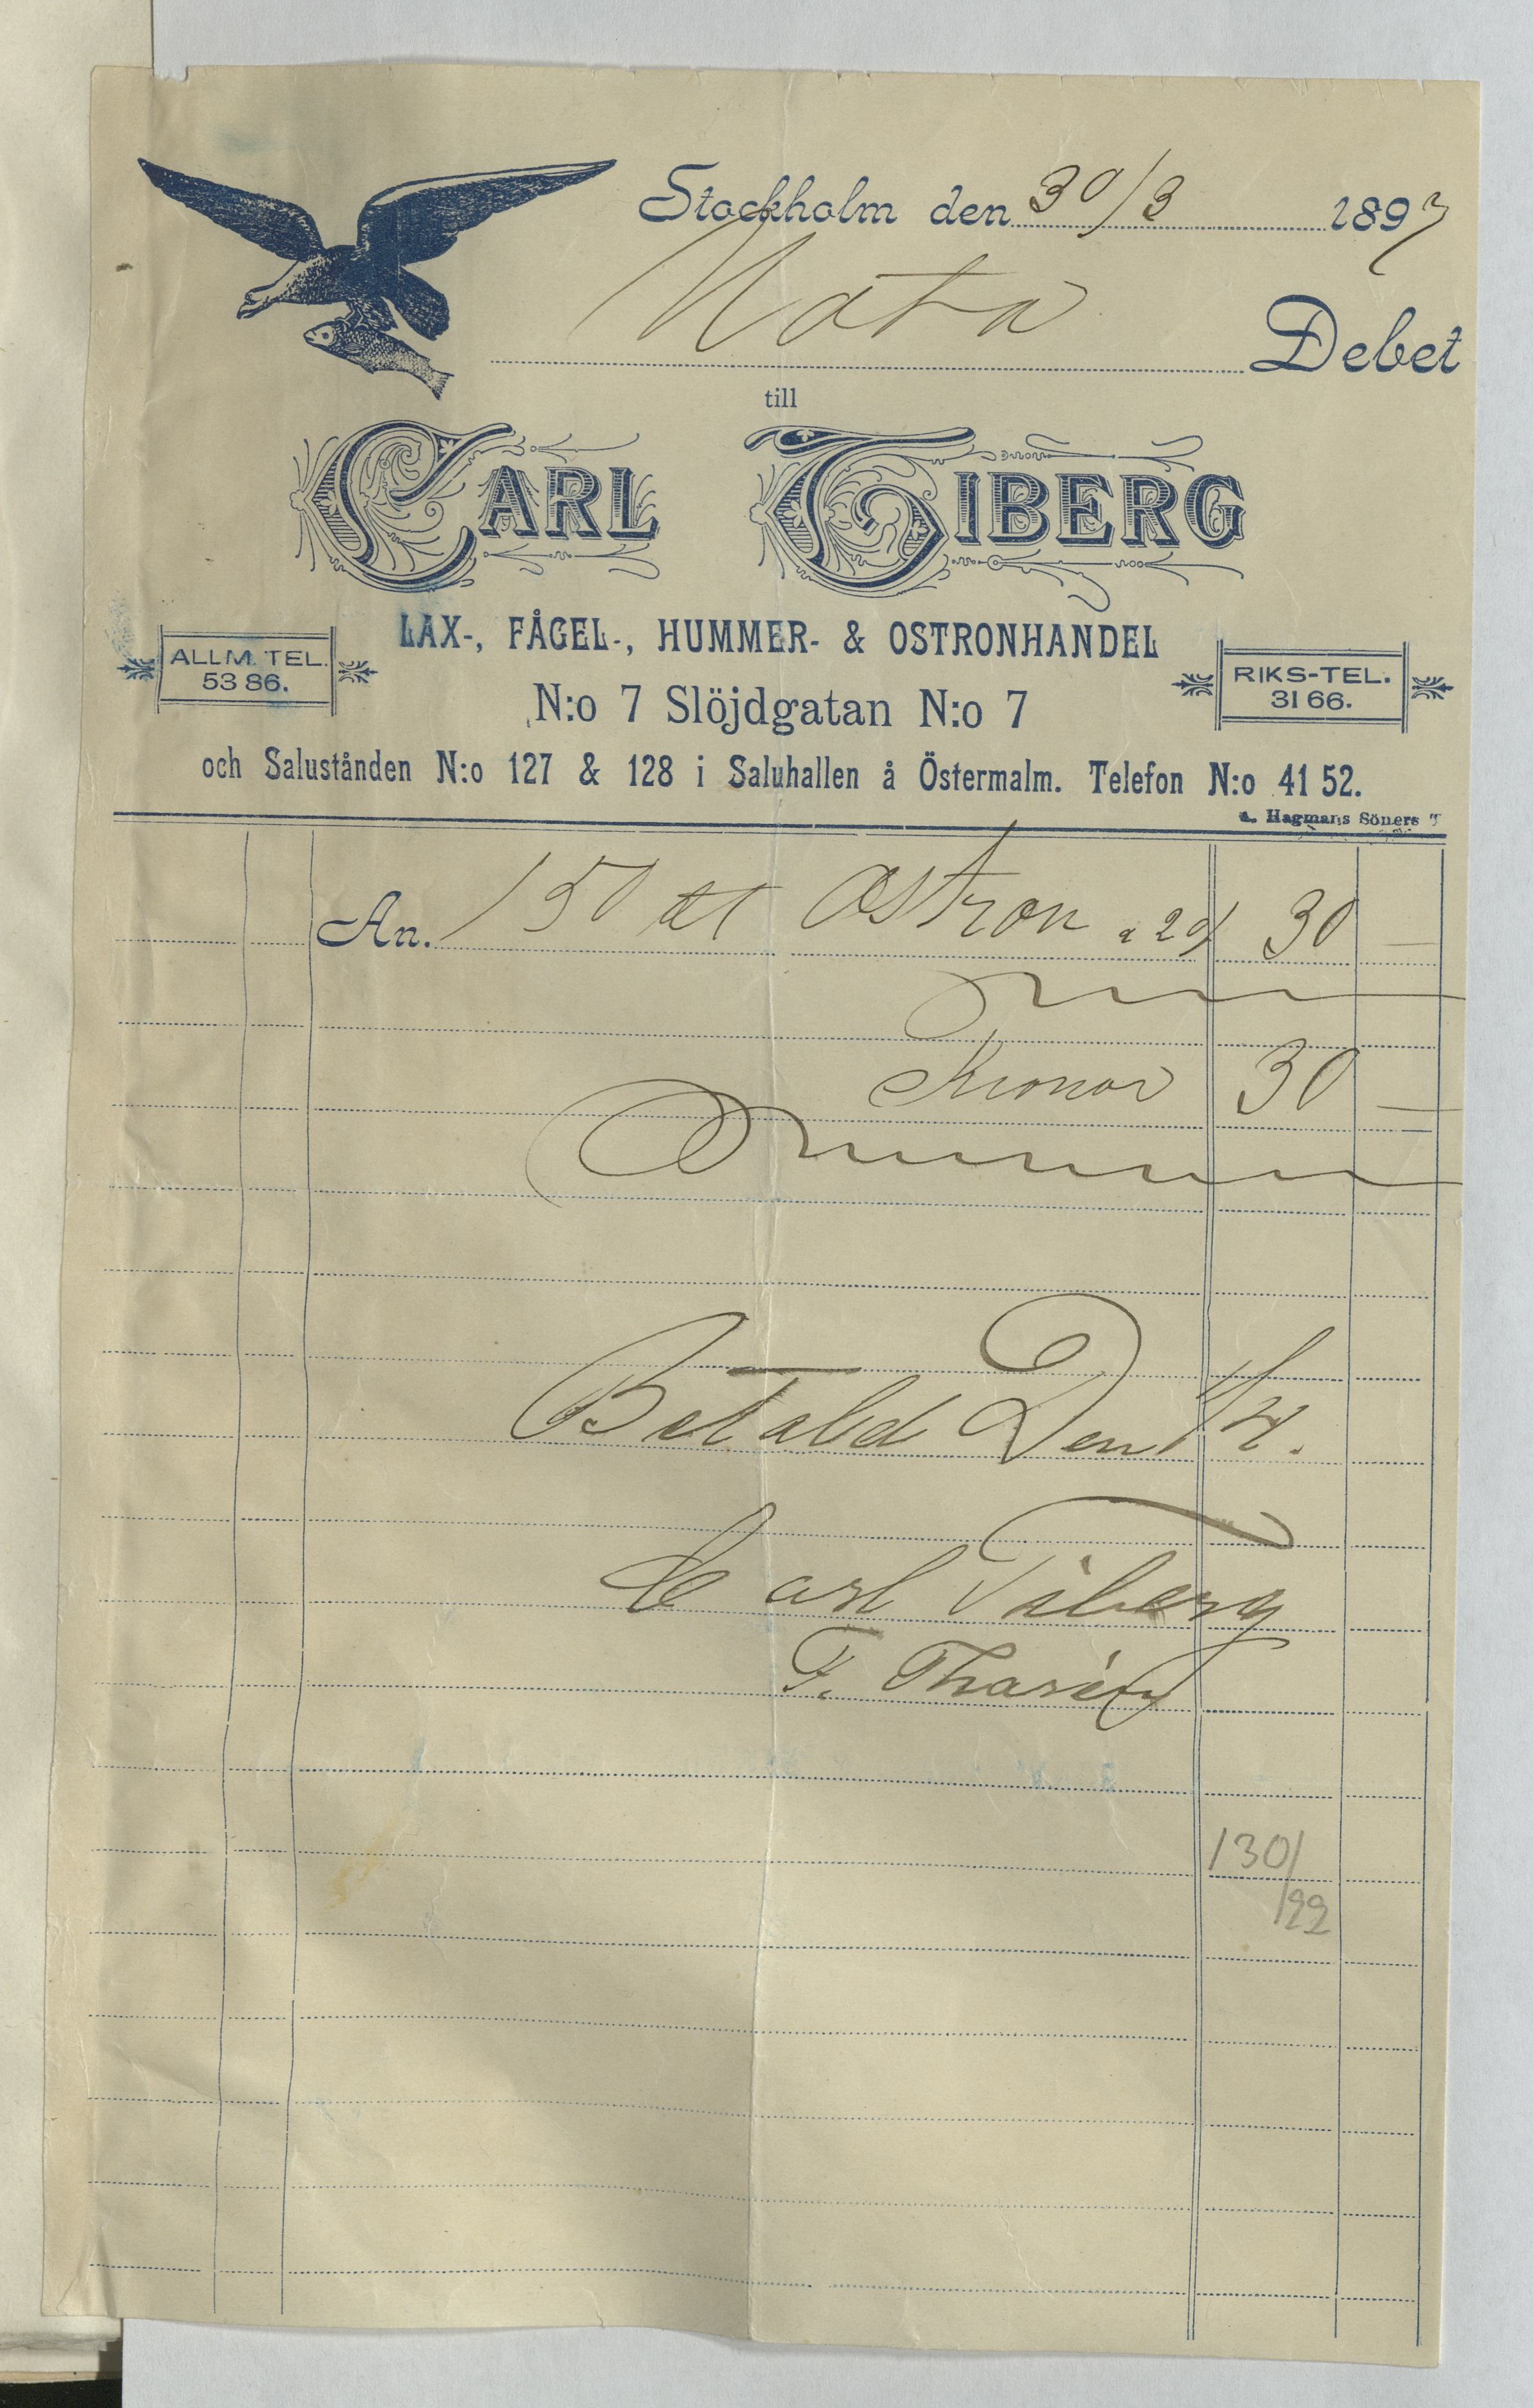 Stockholm den 30/3 1897
Nota
Debet
till
CARL TIBERG
LAX-, FÅGEL-, HUMMER- & OSTRONHANDEL
ALLM. TEL. 53 86.
RIKS-TEL. 31 66.
N:o 7 Slöjdgatan N:o 7
och Salustånden N:o 127 & 128 i Saluhallen å Östermalm. Telefon N:o 41 52.
A. Hagmans Söners T
An. 150 st Ostron a 20/ 30 —
Kronor 30 —
Betald Den 1/4.
Carl Tiberg
F. Thorén
130/
/22